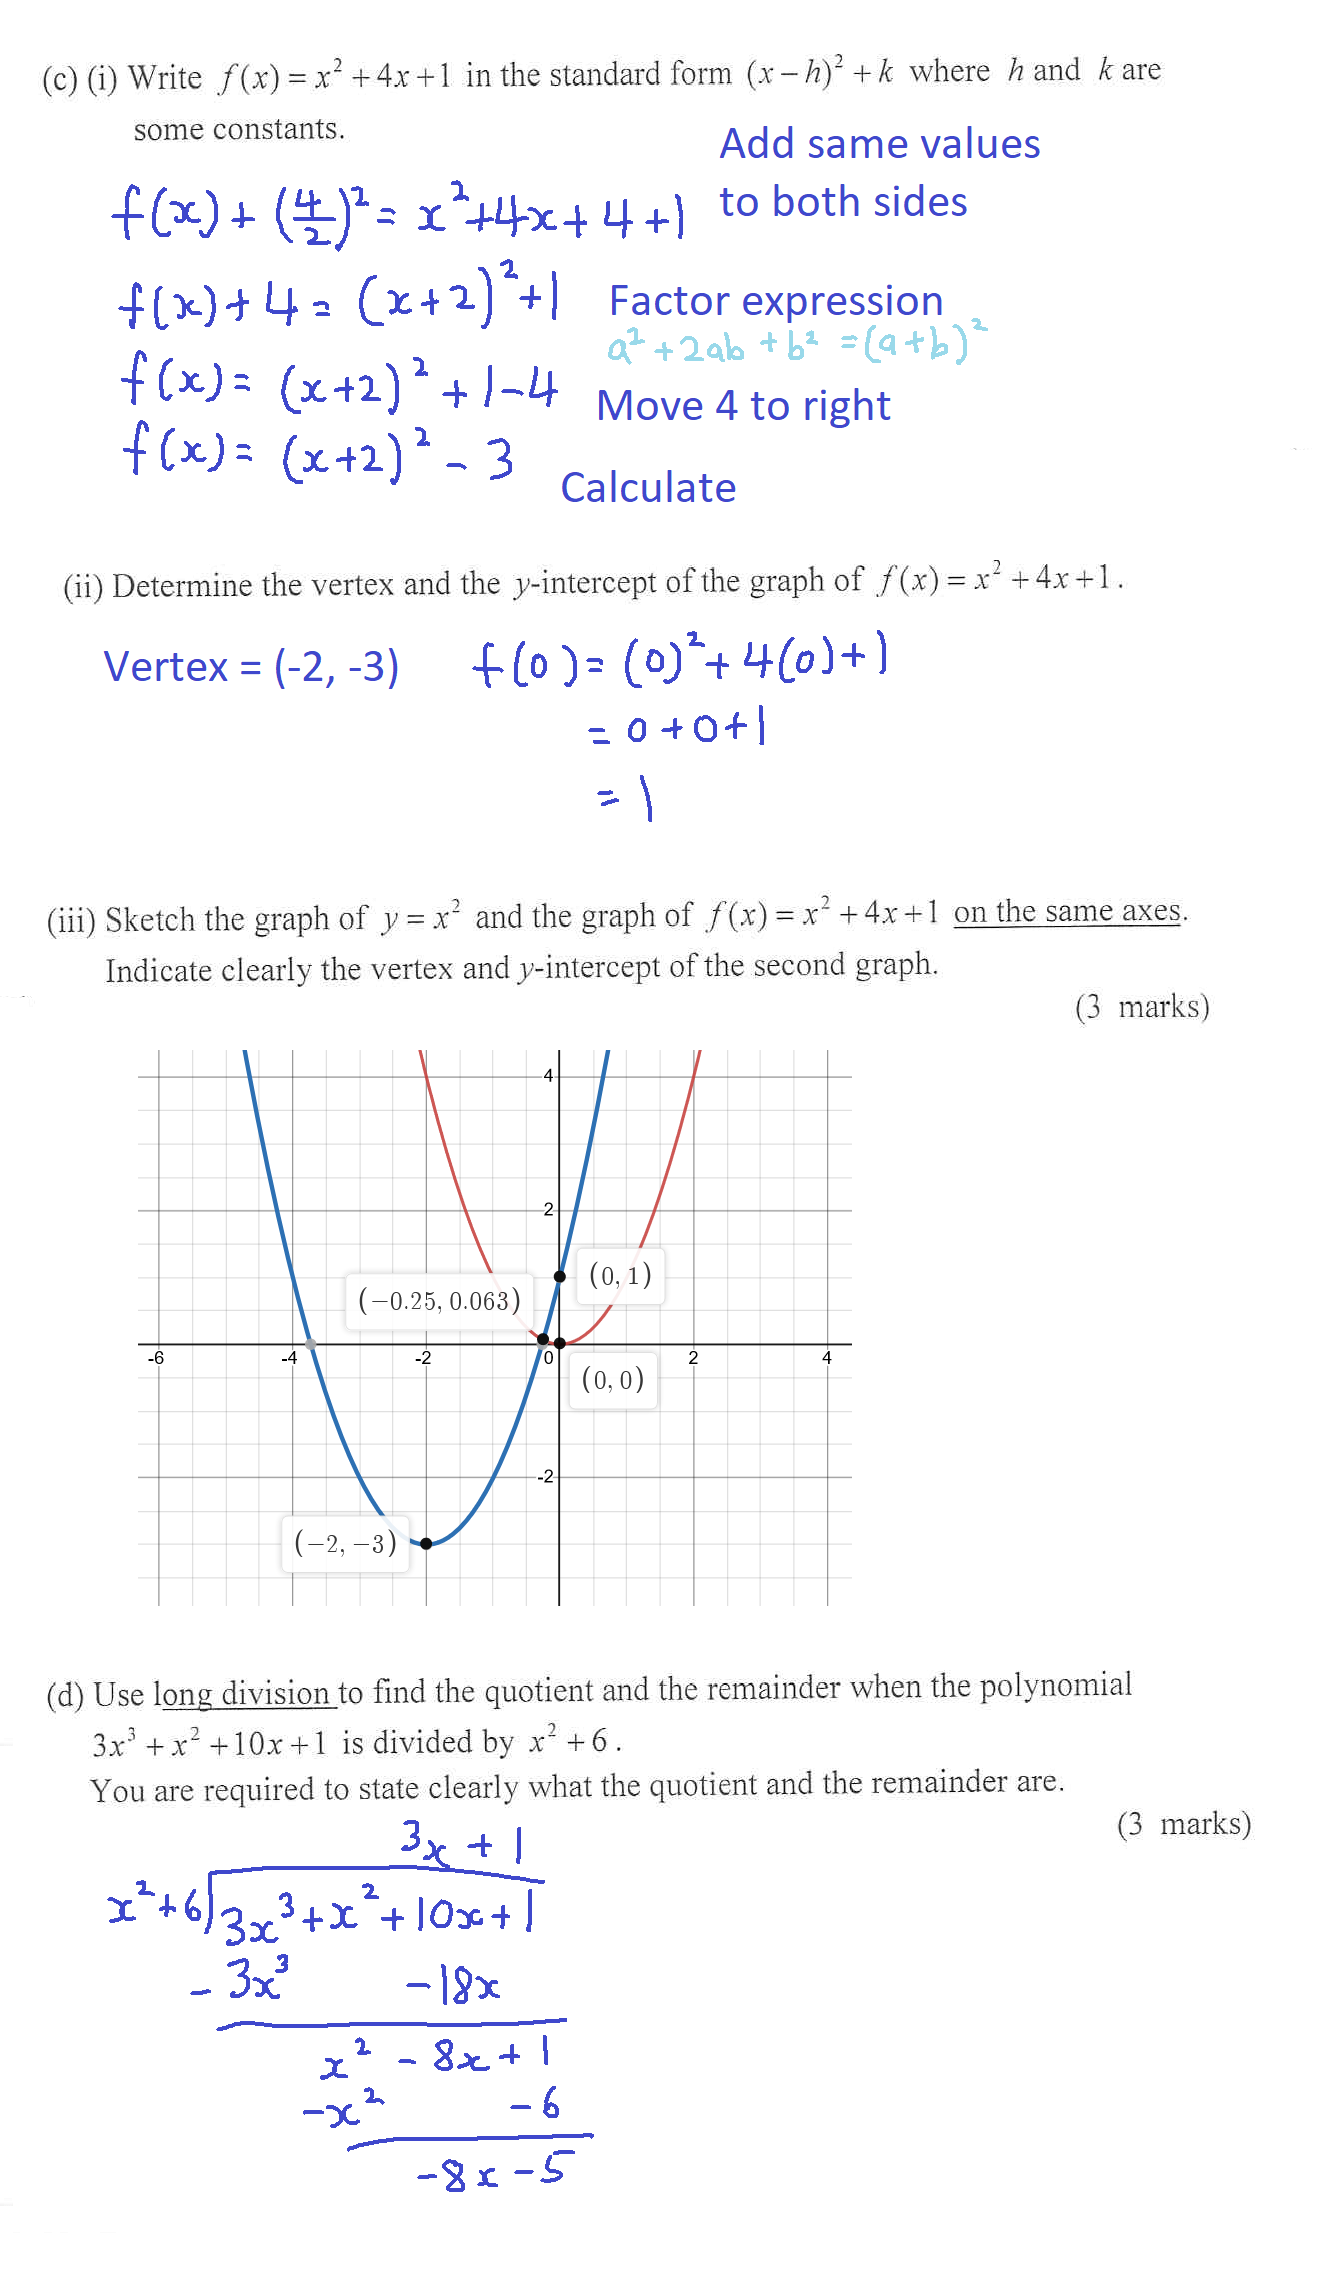 (c) (i) Write f(x) = x² + 4x + 1 in the standard form (x − h)² + k where h and k are
some constants.
Add same values
to both sides
f(x) + (4/2)² = x² + 4x + 4 + 1
f(x) + 4 = (x+2)² + 1
Factor expression
a² + 2ab + b² = (a+b)²
f(x) = (x+2)² + 1 - 4
Move 4 to right
f(x) = (x+2)² - 3
Calculate
(ii) Determine the vertex and the y-intercept of the graph of f(x) = x² + 4x + 1.
Vertex = (-2, -3)
f(0) = (0)² + 4(0) + 1
= 0 + 0 + 1
= 1
(iii) Sketch the graph of y = x² and the graph of f(x) = x² + 4x + 1 on the same axes.
Indicate clearly the vertex and y-intercept of the second graph.
(3 marks)
4
2
(0, 1)
(−0.25, 0.063)
-6 -4 -2 0 2 4
(0, 0)
-2
(−2, −3)
(d) Use long division to find the quotient and the remainder when the polynomial
3x³ + x² + 10x + 1 is divided by x² + 6.
You are required to state clearly what the quotient and the remainder are.
(3 marks)
3x + 1
x² + 6 3x³ + x² + 10x + 1
- 3x³ - 18x
x² - 8x + 1
-x² - 6
-8x - 5